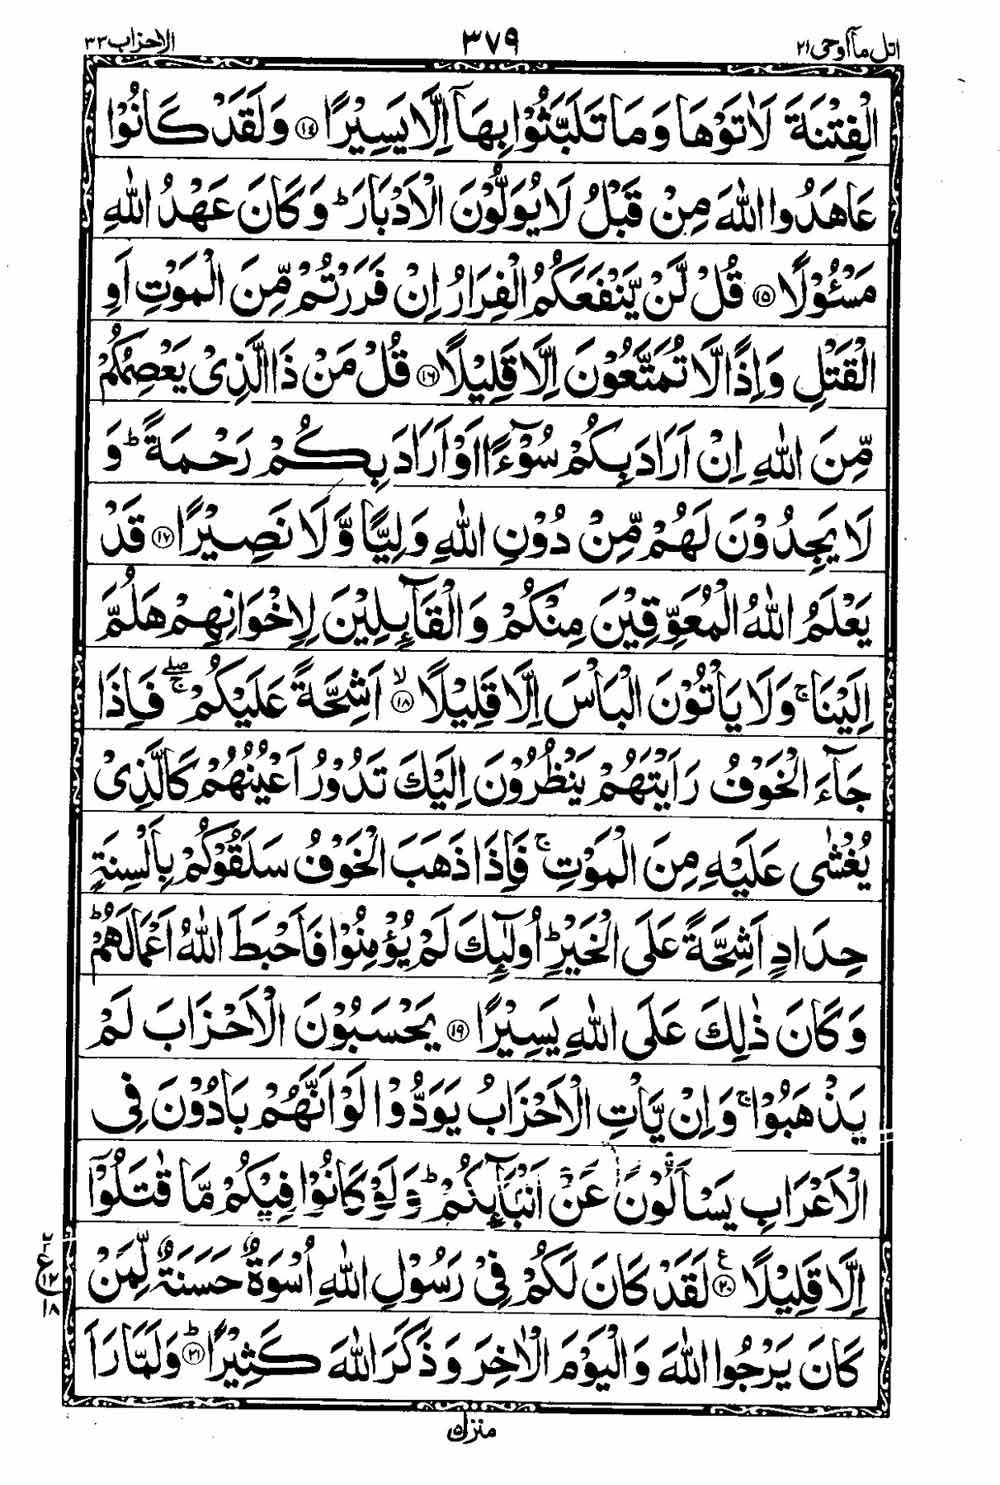 اتل ماۤ اوحی ۲۱
۳۷۹
الاحزاب ۳۳
الْفِتْنَةَ لَاٰتَوْهَا وَمَا تَلَبَّثُوْا بِهَاۤ اِلَّا يَسِيْرًا ۝۱۴ وَلَقَدْ كَانُوْا
عَاهَدُوا اللّٰهَ مِنْ قَبْلُ لَا يُوَلُّوْنَ الْاَدْبَارَ ؕ وَكَانَ عَهْدُ اللّٰهِ
مَسْـُٔوْلًا ۝۱۵ قُلْ لَّنْ يَّنْفَعَكُمُ الْفِرَارُ اِنْ فَرَرْتُمْ مِّنَ الْمَوْتِ اَوِ
الْقَتْلِ وَاِذًا لَّا تُمَتَّعُوْنَ اِلَّا قَلِيْلًا ۝۱۶ قُلْ مَنْ ذَا الَّذِيْ يَعْصِمُكُمْ
مِّنَ اللّٰهِ اِنْ اَرَادَ بِكُمْ سُوْٓءًا اَوْ اَرَادَ بِكُمْ رَحْمَةً ؕ وَ
لَا يَجِدُوْنَ لَهُمْ مِّنْ دُوْنِ اللّٰهِ وَلِيًّا وَّلَا نَصِيْرًا ۝۱۷ قَدْ
يَعْلَمُ اللّٰهُ الْمُعَوِّقِيْنَ مِنْكُمْ وَالْقَآئِلِيْنَ لِاِخْوَانِهِمْ هَلُمَّ
اِلَيْنَا ۚ وَلَا يَاْتُوْنَ الْبَاْسَ اِلَّا قَلِيْلًا ۙ۝۱۸ اَشِحَّةً عَلَيْكُمْ ۚۖ فَاِذَا
جَآءَ الْخَوْفُ رَاَيْتَهُمْ يَنْظُرُوْنَ اِلَيْكَ تَدُوْرُ اَعْيُنُهُمْ كَالَّذِيْ
يُغْشٰى عَلَيْهِ مِنَ الْمَوْتِ ۚ فَاِذَا ذَهَبَ الْخَوْفُ سَلَقُوْكُمْ بِاَلْسِنَةٍ
حِدَادٍ اَشِحَّةً عَلَى الْخَيْرِ ؕ اُولٰٓئِكَ لَمْ يُؤْمِنُوْا فَاَحْبَطَ اللّٰهُ اَعْمَالَهُمْ ؕ
وَكَانَ ذٰلِكَ عَلَى اللّٰهِ يَسِيْرًا ۝۱۹ يَحْسَبُوْنَ الْاَحْزَابَ لَمْ
يَذْهَبُوْا ۚ وَاِنْ يَّاْتِ الْاَحْزَابُ يَوَدُّوْا لَوْ اَنَّهُمْ بَادُوْنَ فِي
الْاَعْرَابِ يَسْاَلُوْنَ عَنْ اَنْۢبَآئِكُمْ ؕ وَلَوْ كَانُوْا فِيْكُمْ مَّا قٰتَلُوْۤا
اِلَّا قَلِيْلًا ۝۲۰ ع لَقَدْ كَانَ لَكُمْ فِيْ رَسُوْلِ اللّٰهِ اُسْوَةٌ حَسَنَةٌ لِّمَنْ
كَانَ يَرْجُوا اللّٰهَ وَالْيَوْمَ الْاٰخِرَ وَذَكَرَ اللّٰهَ كَثِيْرًا ؕ۝۲۱ وَلَمَّا رَاَ
ع
۱۲
۱۸
منزل